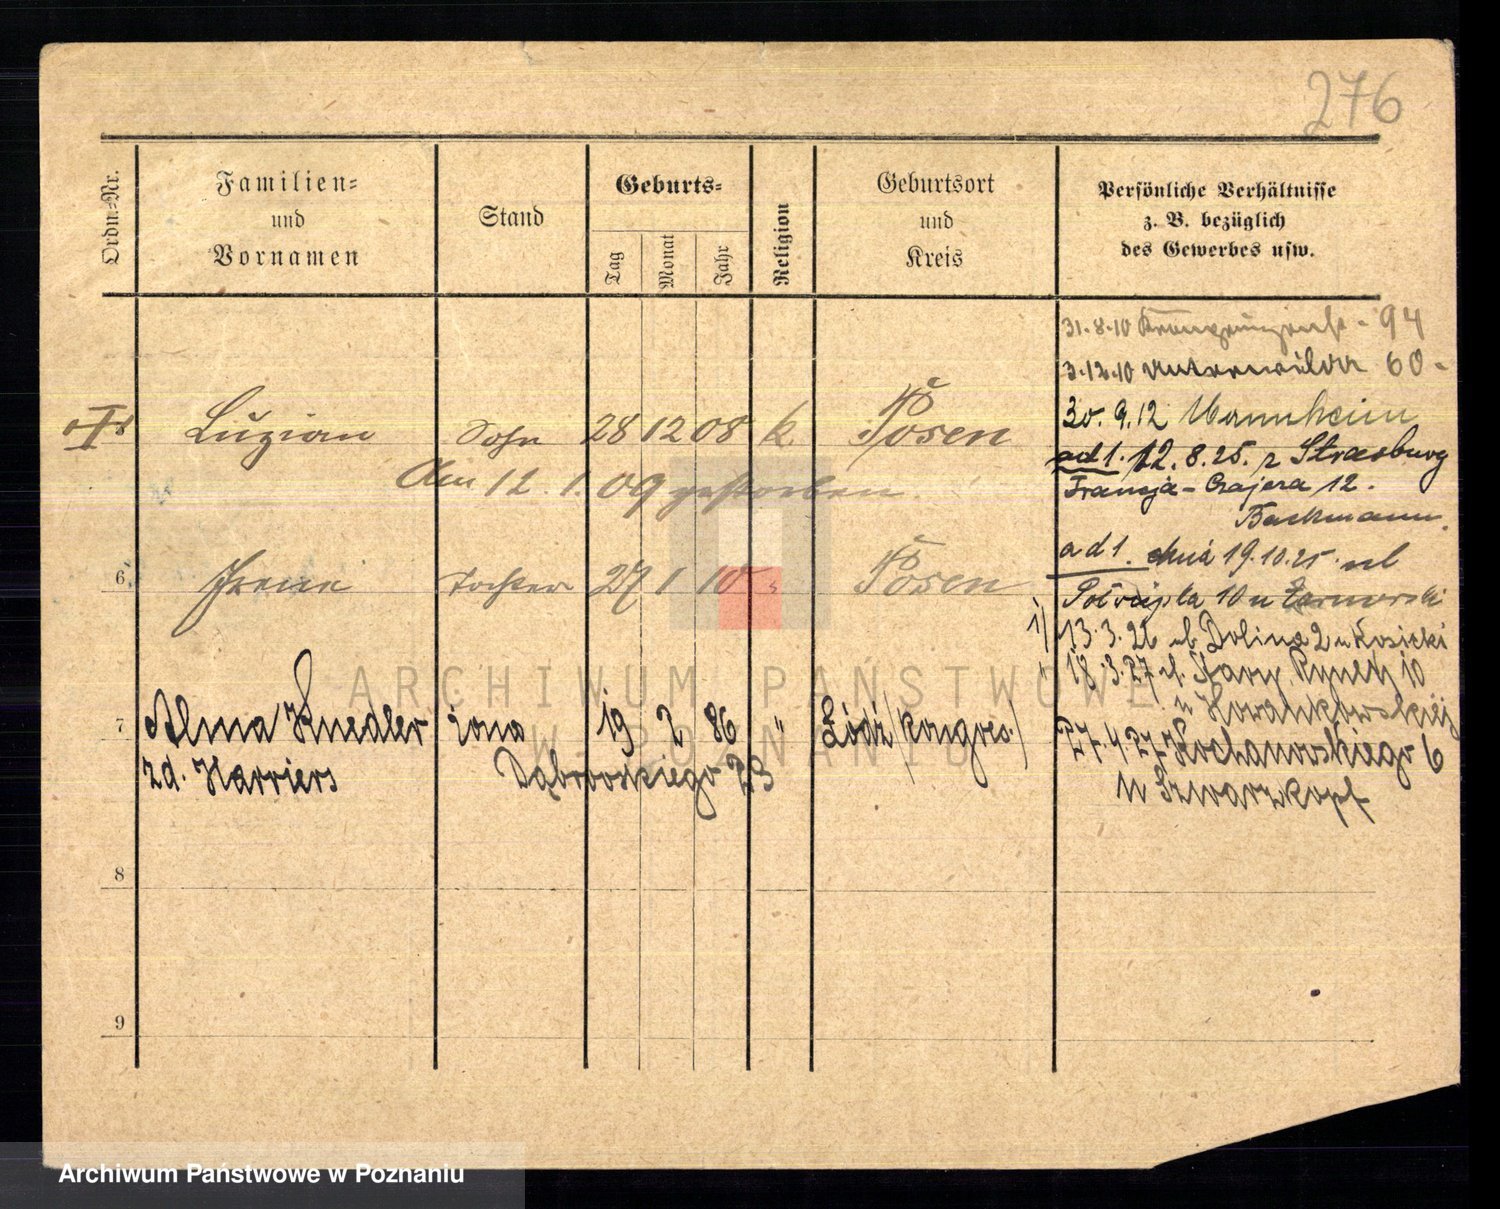 276
Ordn.-Nr.
Familien-
und
Vornamen
Stand
Geburts-
Tag
Monat
Jahr
Religion
Geburtsort
und
Kreis
Persönliche Verhältnisse
z. B. bezüglich
des Gewerbes usw.
31.8.10 - 94
3.12.10 Unterwilda 60 -
30.9.12 Mannheim
Luzian Sohn 28 12 08 k. Posen
Am 12.1.09 gestorben.
ad 1. 12.8.25. z Strasburg
Francja - 12.
Backmann.
ad 1. dnia 19.10.25. ul
6 Irene Tochter 27 1 10 " Posen
10 u
1) 13.3.26 ul. Dolina 2 u Kosicki
18.3.27 ul. Stary Rynek 10
u
7 Alma Knedler żona 19 2 86 " Łódź /kongres./
27.4.27 Kochanowskiego 6
zd. Harriers Dąbrowskiego 23
u Szwarzkopf
8
9
ARCHIWUM PAŃSTWOWE
W POZNANIU
Archiwum Państwowe w Poznaniu